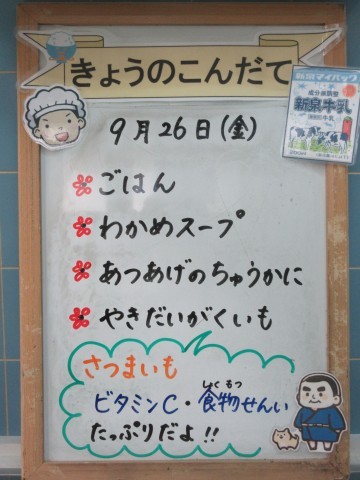 きょうのこんだて
9月26日(金)
ごはん
わかめスープ
あつあげのちゅうかに
やきだいがくいも
さつまいも
ビタミンC・食物せんい
しょくもつ
たっぷりだよ!!
新泉牛乳